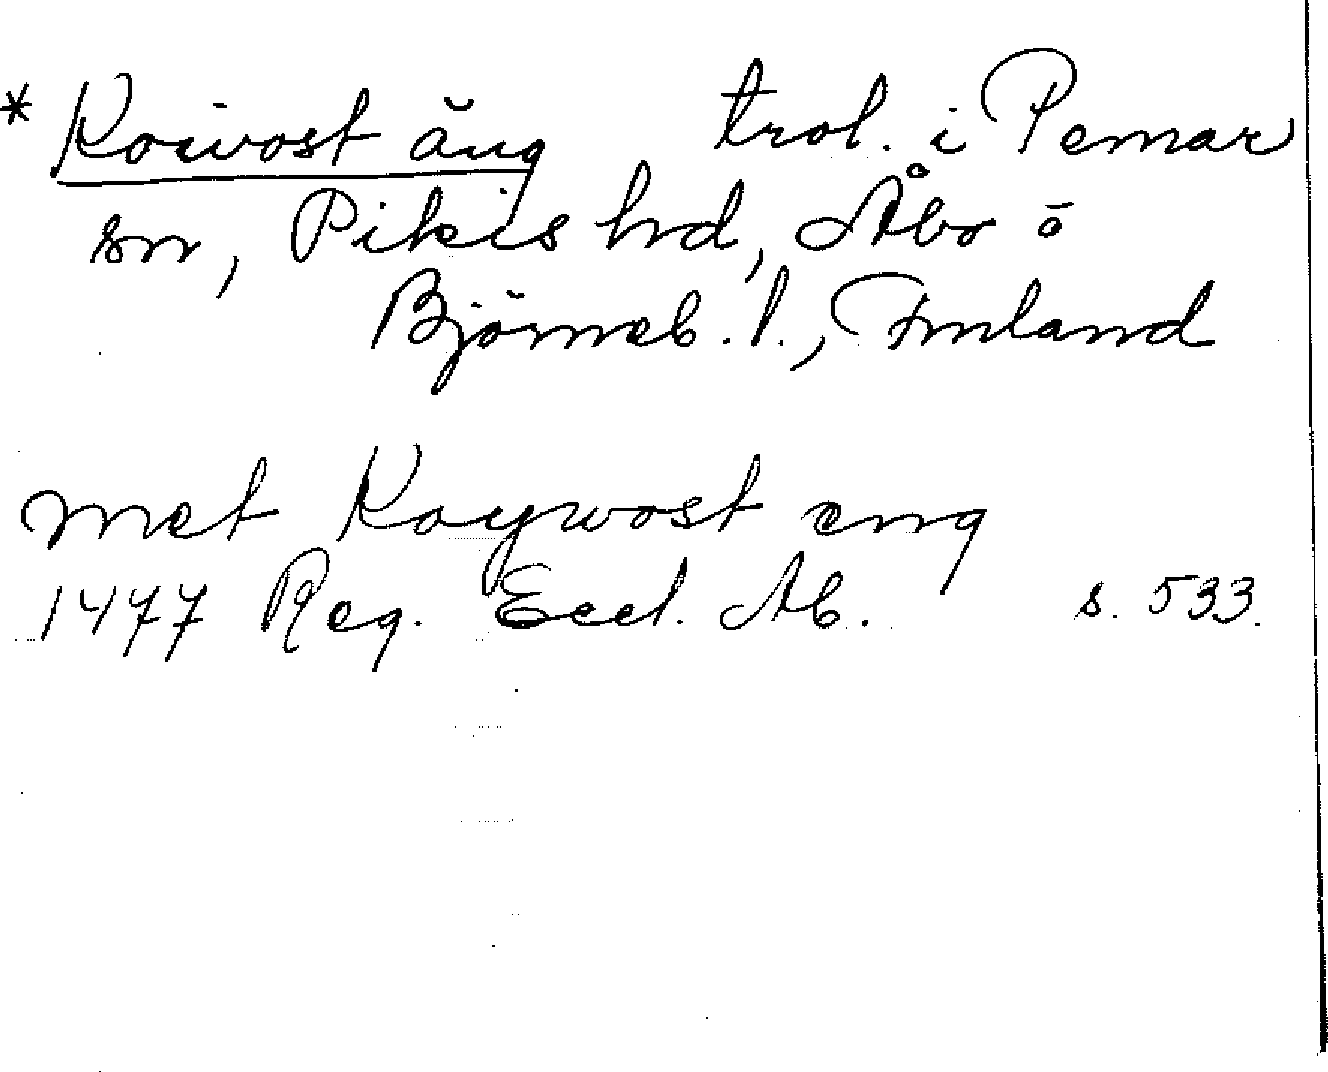 * Koivost äng trol. i Pemar
sn, Pikis hd, Åbo o
Björneb. l., Finland
met Koywost eng
1477 Reg. Eccl. Ab. s. 533.